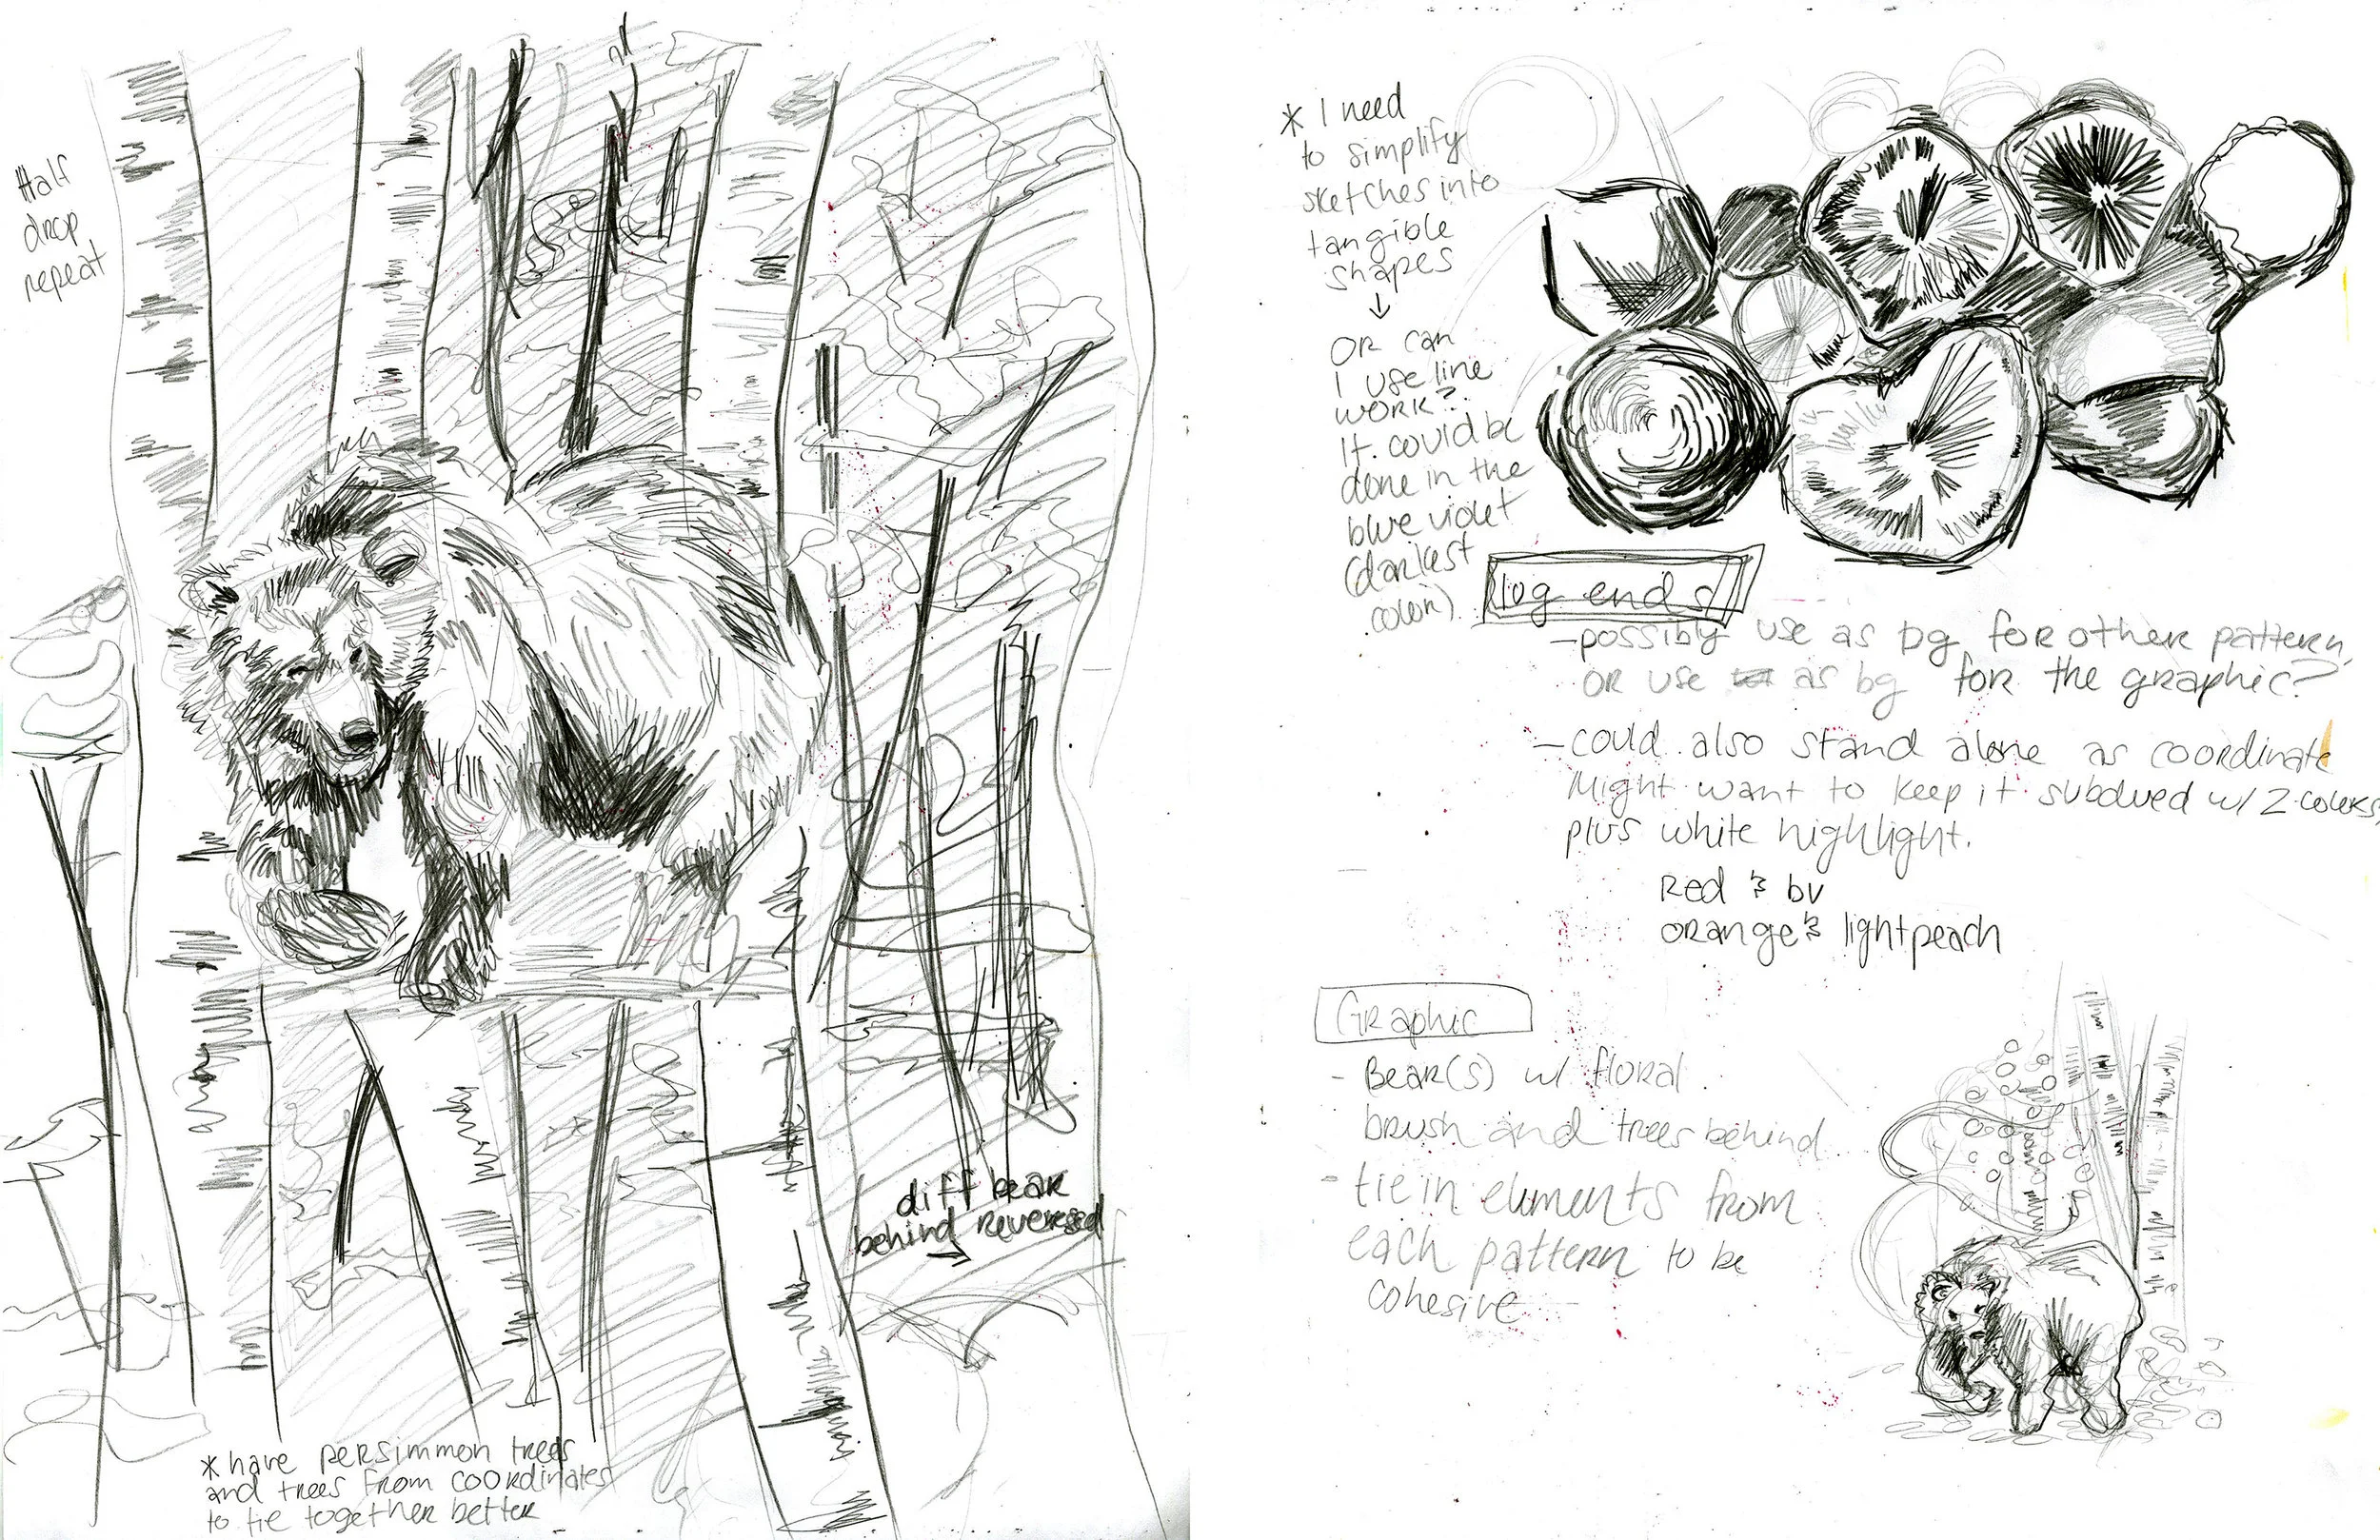 Half
drop
repeat
diff bear
behind reversed
*have persimmon trees
and trees from coordinates
to tie together better
* I need
to simplify
sketches into
tangible
shapes
↓
OR can
I use line
work?
It could be
done in the
blue violet
(darkest
color)
log ends
-possibly use as bg for other pattern,
or use as bg for the graphic?
-could also stand alone as coordinate
Might want to keep it subdued w/ 2 colors,
plus white highlight.
Red & bv
orange & lightpeach
Graphic
- Bear(s) w/ floral
brush and trees behind
- tie in elements from
each pattern to be
cohesive